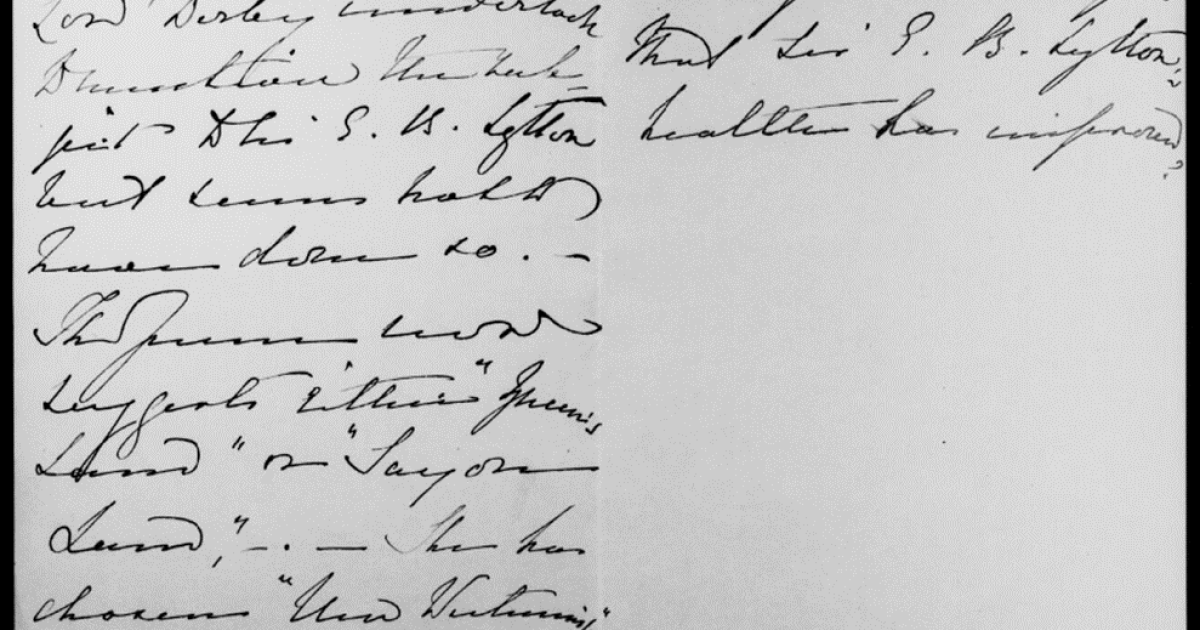 Lord Derby undertook
to mention the sub-
ject to Sir E. B. Lytton
but seems not to
have done so. –
The Queen now
suggests either "Queen's
Land" or
Land," – . – She has
chosen "New
that Sir E. B. Lytton's
health has improved?